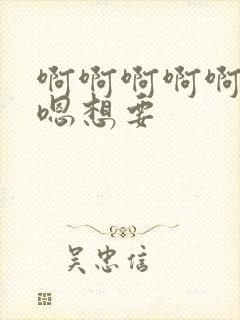 啊啊啊啊啊
嗯想要
吴忠信